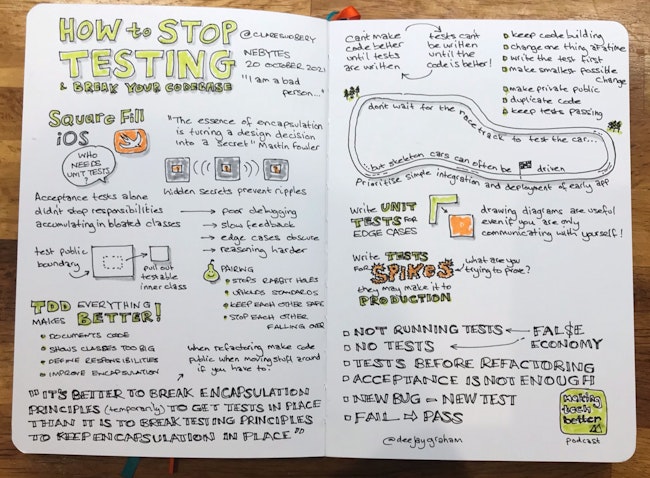 HOW to STOP
TESTING
& BREAK YOUR CODEBASE
@CLARESUDBERY
NEBYTES
20 OCTOBER 2021
"I am a bad
person..."
Square Fill
iOS
WHO
NEEDS
UNIT TESTS
?
"The essence of encapsulation
is turning a design decision
into a secret" Martin Fowler
Hidden secrets prevent ripples
Acceptance tests alone
didn't stop responsibilities
accumulating in bloated classes
poor debugging
slow feedback
edge cases obscure
reasoning harder
test public
boundary
pull out
testable
inner class
PAIRING
STOPS RABBIT HOLES
UPHOLDS STANDARDS
KEEP EACH OTHER SAFE
STOP EACH OTHER
FALLING OVER
TDD EVERYTHING
MAKES BETTER!
DOCUMENTS CODE
SHOWS CLASSES TOO BIG
DEFINE RESPONSIBILITIES
IMPROVE ENCAPSULATION
when refactoring make code
public when moving stuff around
if you have to.
"IT'S BETTER TO BREAK ENCAPSULATION
PRINCIPLES (temporarily) TO GET TESTS IN PLACE
THAN IT IS TO BREAK TESTING PRINCIPLES
TO KEEP ENCAPSULATION IN PLACE"
Can't make
code better
until tests
are written
tests can't
be written
until the
code is better!
keep code building
change one thing at a time
write the test first
make smallest possible
change
make private public
duplicate code
keep tests passing
don't wait for the race track to test the car...
...but skeleton cars can often be driven
Prioritise simple integration and deployment of early app
Write UNIT
TESTS for
EDGE CASES
drawing diagrams are useful
even if you are only
communicating with yourself!
Write TESTS
FOR SPIKES
they may make it to
PRODUCTION
what are you
trying to prove?
NOT RUNNING TESTS
NO TESTS
FAL$E
ECONOMY
TESTS BEFORE REFACTORING
ACCEPTANCE IS NOT ENOUGH
NEW BUG = NEW TEST
FAIL ⇨ PASS
@deejaygraham
making
tech
better
podcast